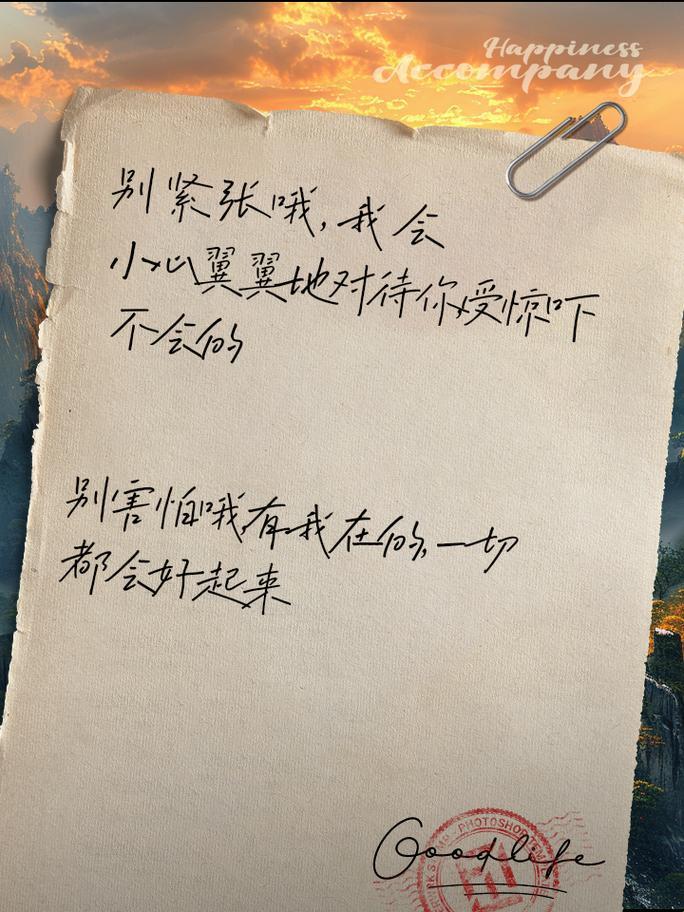 Happiness
Accompany
别紧张哦,我会
小心翼翼地对待你,受惊吓
不会的
别害怕哦,有我在的,一切
都会好起来
PHOTOSHOP
Goodlife